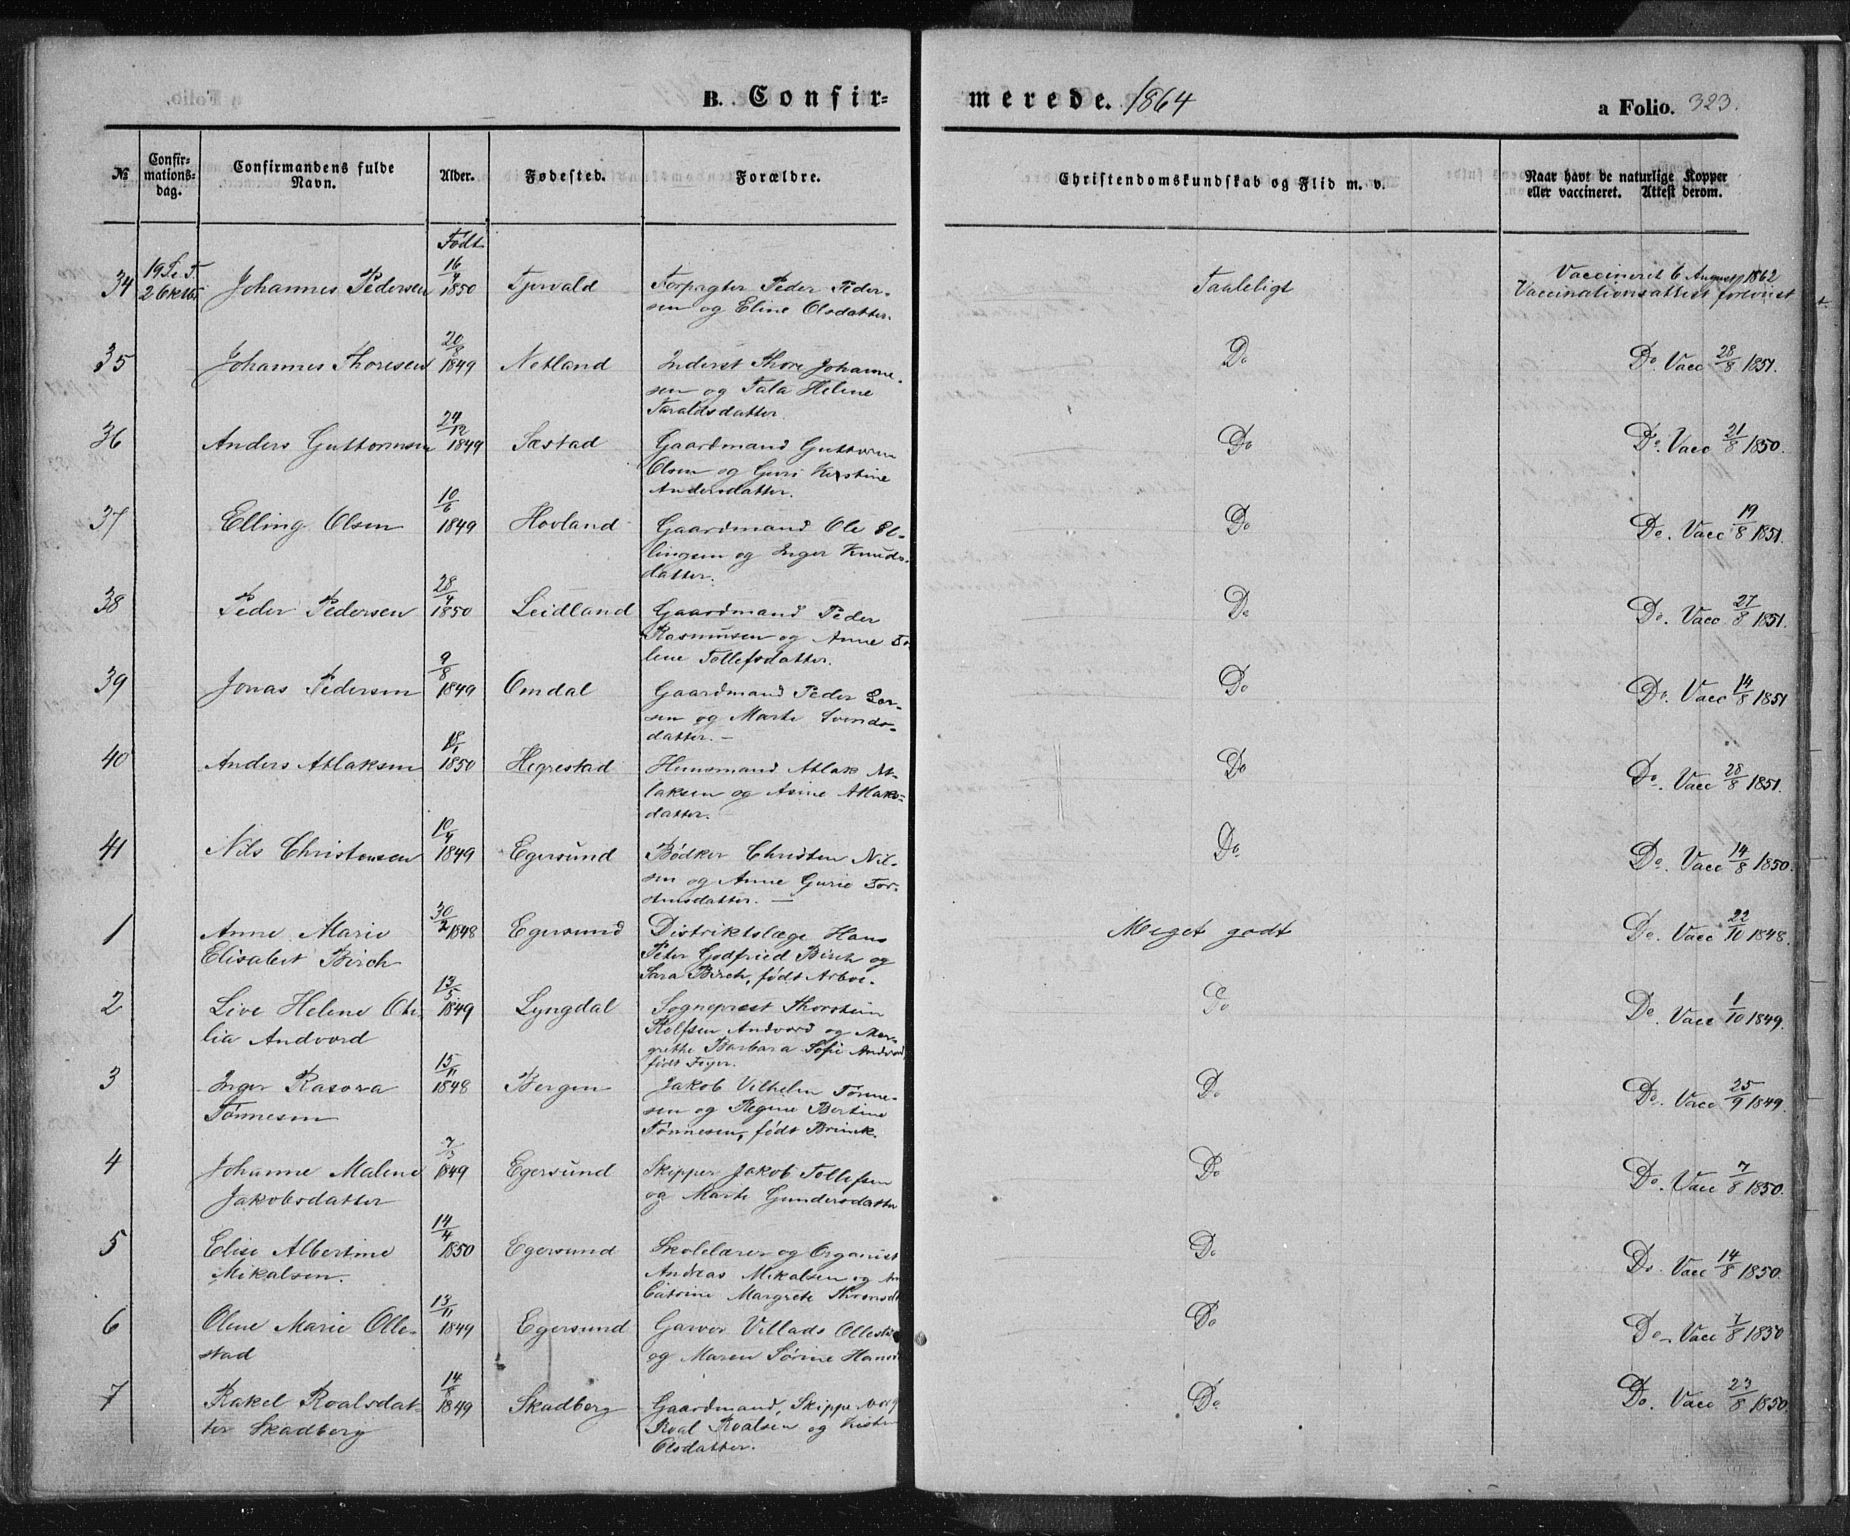 B. Confir-
merede. 1864
a Folio. 323.
№
Confir-
mations-
dag.
Confirmandens fulde
Navn.
Alder.
Fødested.
Forældre.
Christendomskundskab og Flid m. v.
Naar havt de naturlige Kopper
eller vaccineret. Attest derom.
Født
34 19 S. e. T. 2 Oktbr Johannes Pedersen 16/9 1850
Forpagter Peder Peder-
sen og Eline Olsdatter.
Taaleligt
Vaccineret 6 August 1862
Vaccinationsattest forevist
35 Johannes Thoresen 1849 Netland
Inderst Thore Johanne-
sen og Tala Helene
Taraldsdatter.
Do
Do. Vacc 28/8 1851.
36 Anders Guttormsen 24/12 1849 Sæstad
Gaardmand Guttorm
Olsen og Guri Kirstine
Andersdatter.
Do
Do. Vacc 21/8 1850.
37 Elling Olsen 10/6 1849 Hovland
Gaardmand Ole El-
lingsen og Inger Knuds-
datter.
Do
Do. Vacc 19/8 1851.
38 Peder Pedersen 28/4 1850 Leidland
Gaardmand Peder
Rasmusen og Anne To-
lene Tollefsdatter.
Do
Do. Vacc 27/8 1851.
39 Jonas Pedersen 9/8 1849 Omdal
Gaardmand Peder Lar-
sen og Marte Svends-
datter. -
Do
Do. Vacc 14/8 1851
40 Anders Atlaksen 1850 Hegrestad
Huusmand Atlak At-
laksen og Anne Atlaks-
datter.
Do
Do. Vacc 28/8 1851.
41 Nils Christensen 1849 Egersund
Bødker Christen Nil-
sen og Anne Gurie Tor-
datter. -
Do
Do. Vacc 14/8 1850.
1 Anne Marie 1848 Egersund
Elisabet Birch
Distriktslæge Hans
Peter Godfried Birch og
Sara Birch, født Arboe.
Meget godt
Do. Vacc 22/10 1848.
2 Live Helene Oti- 13/5 1849 Lyngdal
lia Andvord
Sognepræst Thorstein
Rolfsen Andvord og Mar-
grethe Barbara Sofie Andvord
født Feyer.
Do
Do. Vacc 1/10 1849.
3 Inger Rasora 15/11 1848 Bergen
Tønnesen
Jakob Vilhelm Tønne-
sen og Regine Bertine
Tønnesen, født Brinck.
Do
Do. Vacc 25/9 1849.
4 Johanne Malene 1849 Egersund
Jakobsdatter
Skipper Jakob Tollefsen
og Marte Gundersdatter
Do
Do. Vacc 7/8 1850.
5 Elise Albertine 14/4 1850 Egersund
Mikalsen.
Skolelærer og Organist
Andreas Mikalsen og
Catrine Margrete
Do
Do. Vacc 14/8 1850.
6 Olene Marie Olle- 13/11 1849 Egersund
stad
Garver Villads
og Maren Sørine
Do
Do- Vacc 7/8 1850
7 Rakel Roalsdat- 1849 Skadberg
ter Skadberg
Gaardmand, Skipper
Roal Roalsen og
Olsdatter.
Do
Do. Vacc 23/8 1850.